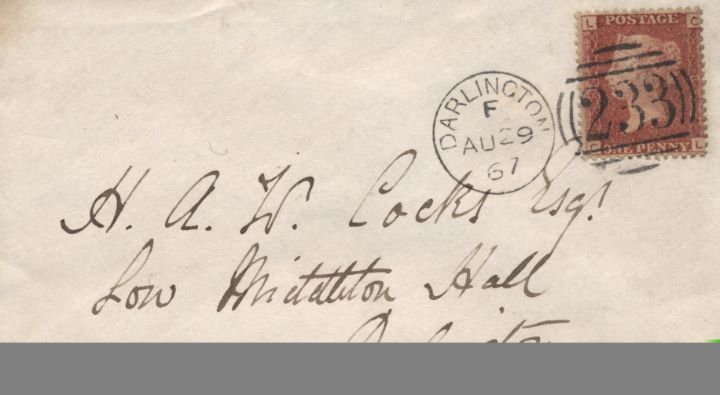 L POSTAGE C
DARLINGTON
F
AU 29
67
233
C ONE PENNY L
H. A. W. Cocks Esqr
Low Middleton Hall